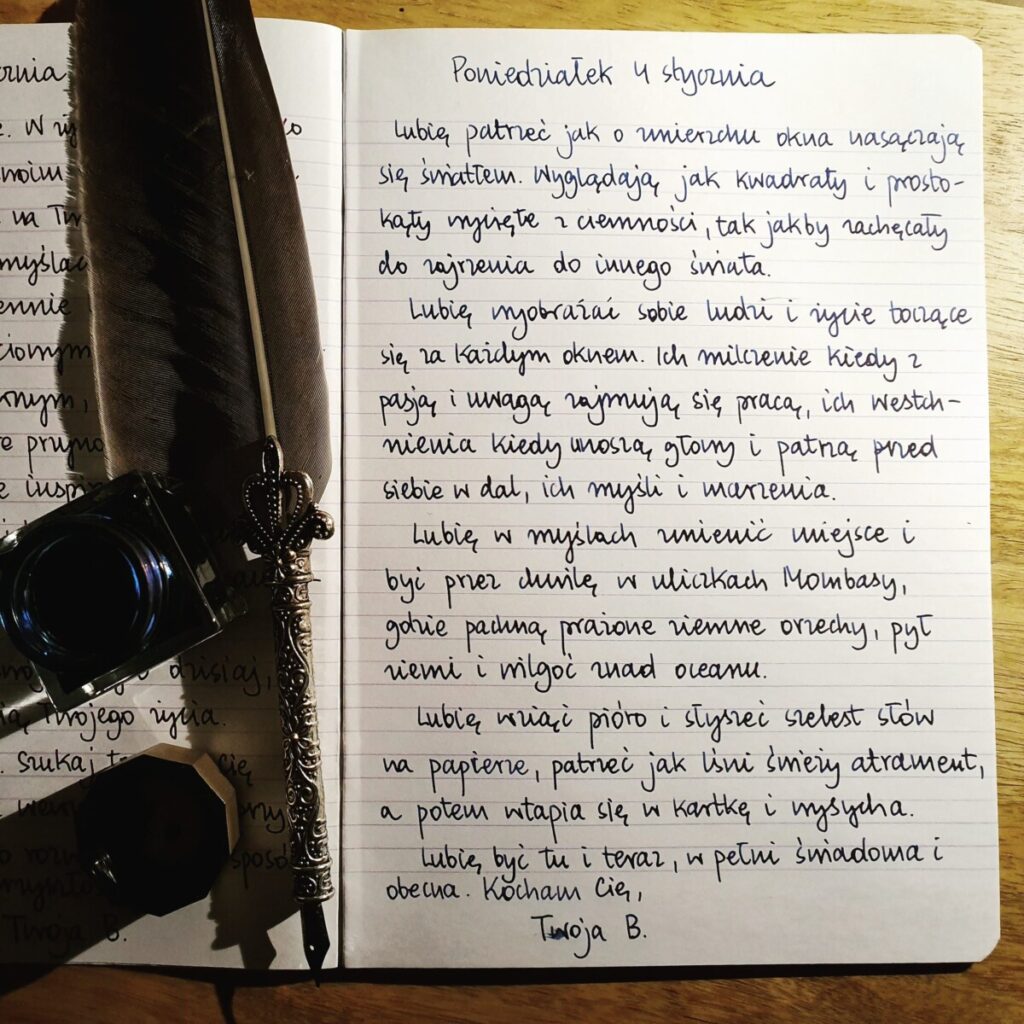 rznia
. W
moim
na Tw
myślac
ennie i
cionym
rnym,
re
e inspi
dzisiaj,
Twojego życia.
Szukaj Cię
sposó
Twoja B.
Poniedziałek 4 stycznia
Lubię patrzeć jak o zmierzchu okna nasączają
się światłem. Wyglądają jak kwadraty i prosto-
kąty wycięte z ciemności, tak jakby zachęcały
do zajrzenia do innego świata.
Lubię wyobrażać sobie ludzi i życie toczące
się za każdym oknem. Ich milczenie kiedy z
pasją i uwagą zajmują się pracą, ich westch-
nienia kiedy unoszą głowy i patrzą przed
siebie w dal, ich myśli i marzenia.
Lubię w myślach zmienić miejsce i
być przez chwilę w uliczkach Mombasy,
gdzie pachną prażone ziemne orzechy, pył
ziemi i wilgoć znad oceanu.
Lubię wziąć pióro i słyszeć szelest słów
na papierze, patrzeć jak lśni świeży atrament,
a potem wtapia się w kartkę i wysycha.
Lubię być tu i teraz, w pełni świadoma i
obecna. Kocham Cię,
Twoja B.